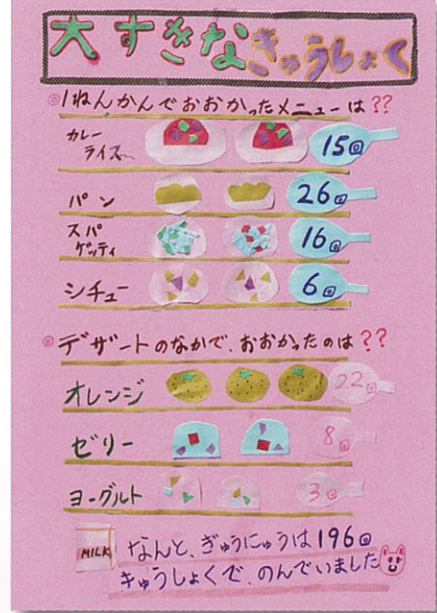 大すきなきゅうしょく
◎1ねんかんでおおかったメニューは??
カレーライス 15回
パン 26回
スパゲッティ 16回
シチュー 6回
◎デザートのなかで、おおかったのは??
オレンジ 22回
ゼリー 8回
ヨーグルト 3回
MILK なんと、ぎゅうにゅうは196回
きゅうしょくで、のんでいました